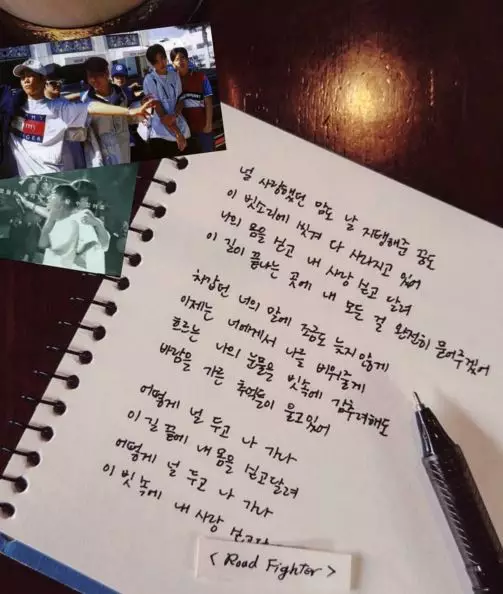 널 사랑했던 맘도 날 지탱해준 꿈도
이 빗소리에 씻겨 다 사라지고 있어
나의 몸을 싣고 내 사랑 싣고 달려
이 길이 끝나는 곳에 내 모든 걸 완전히 묻어주겠어
차갑던 너의 말에 조금도 늦지않게
이제는 너에게서 나를 비워줄게
흐르는 나의 눈물을 빗속에 감추려해도
바람을 가른 추억들이 울고있어
어떻게 널 두고 나 가나
이 길 끝에 내 몸을 싣고달려
어떻게 널 두고 나 가나
이 빗속에 내 사랑 싣고달
< Road Fighter >